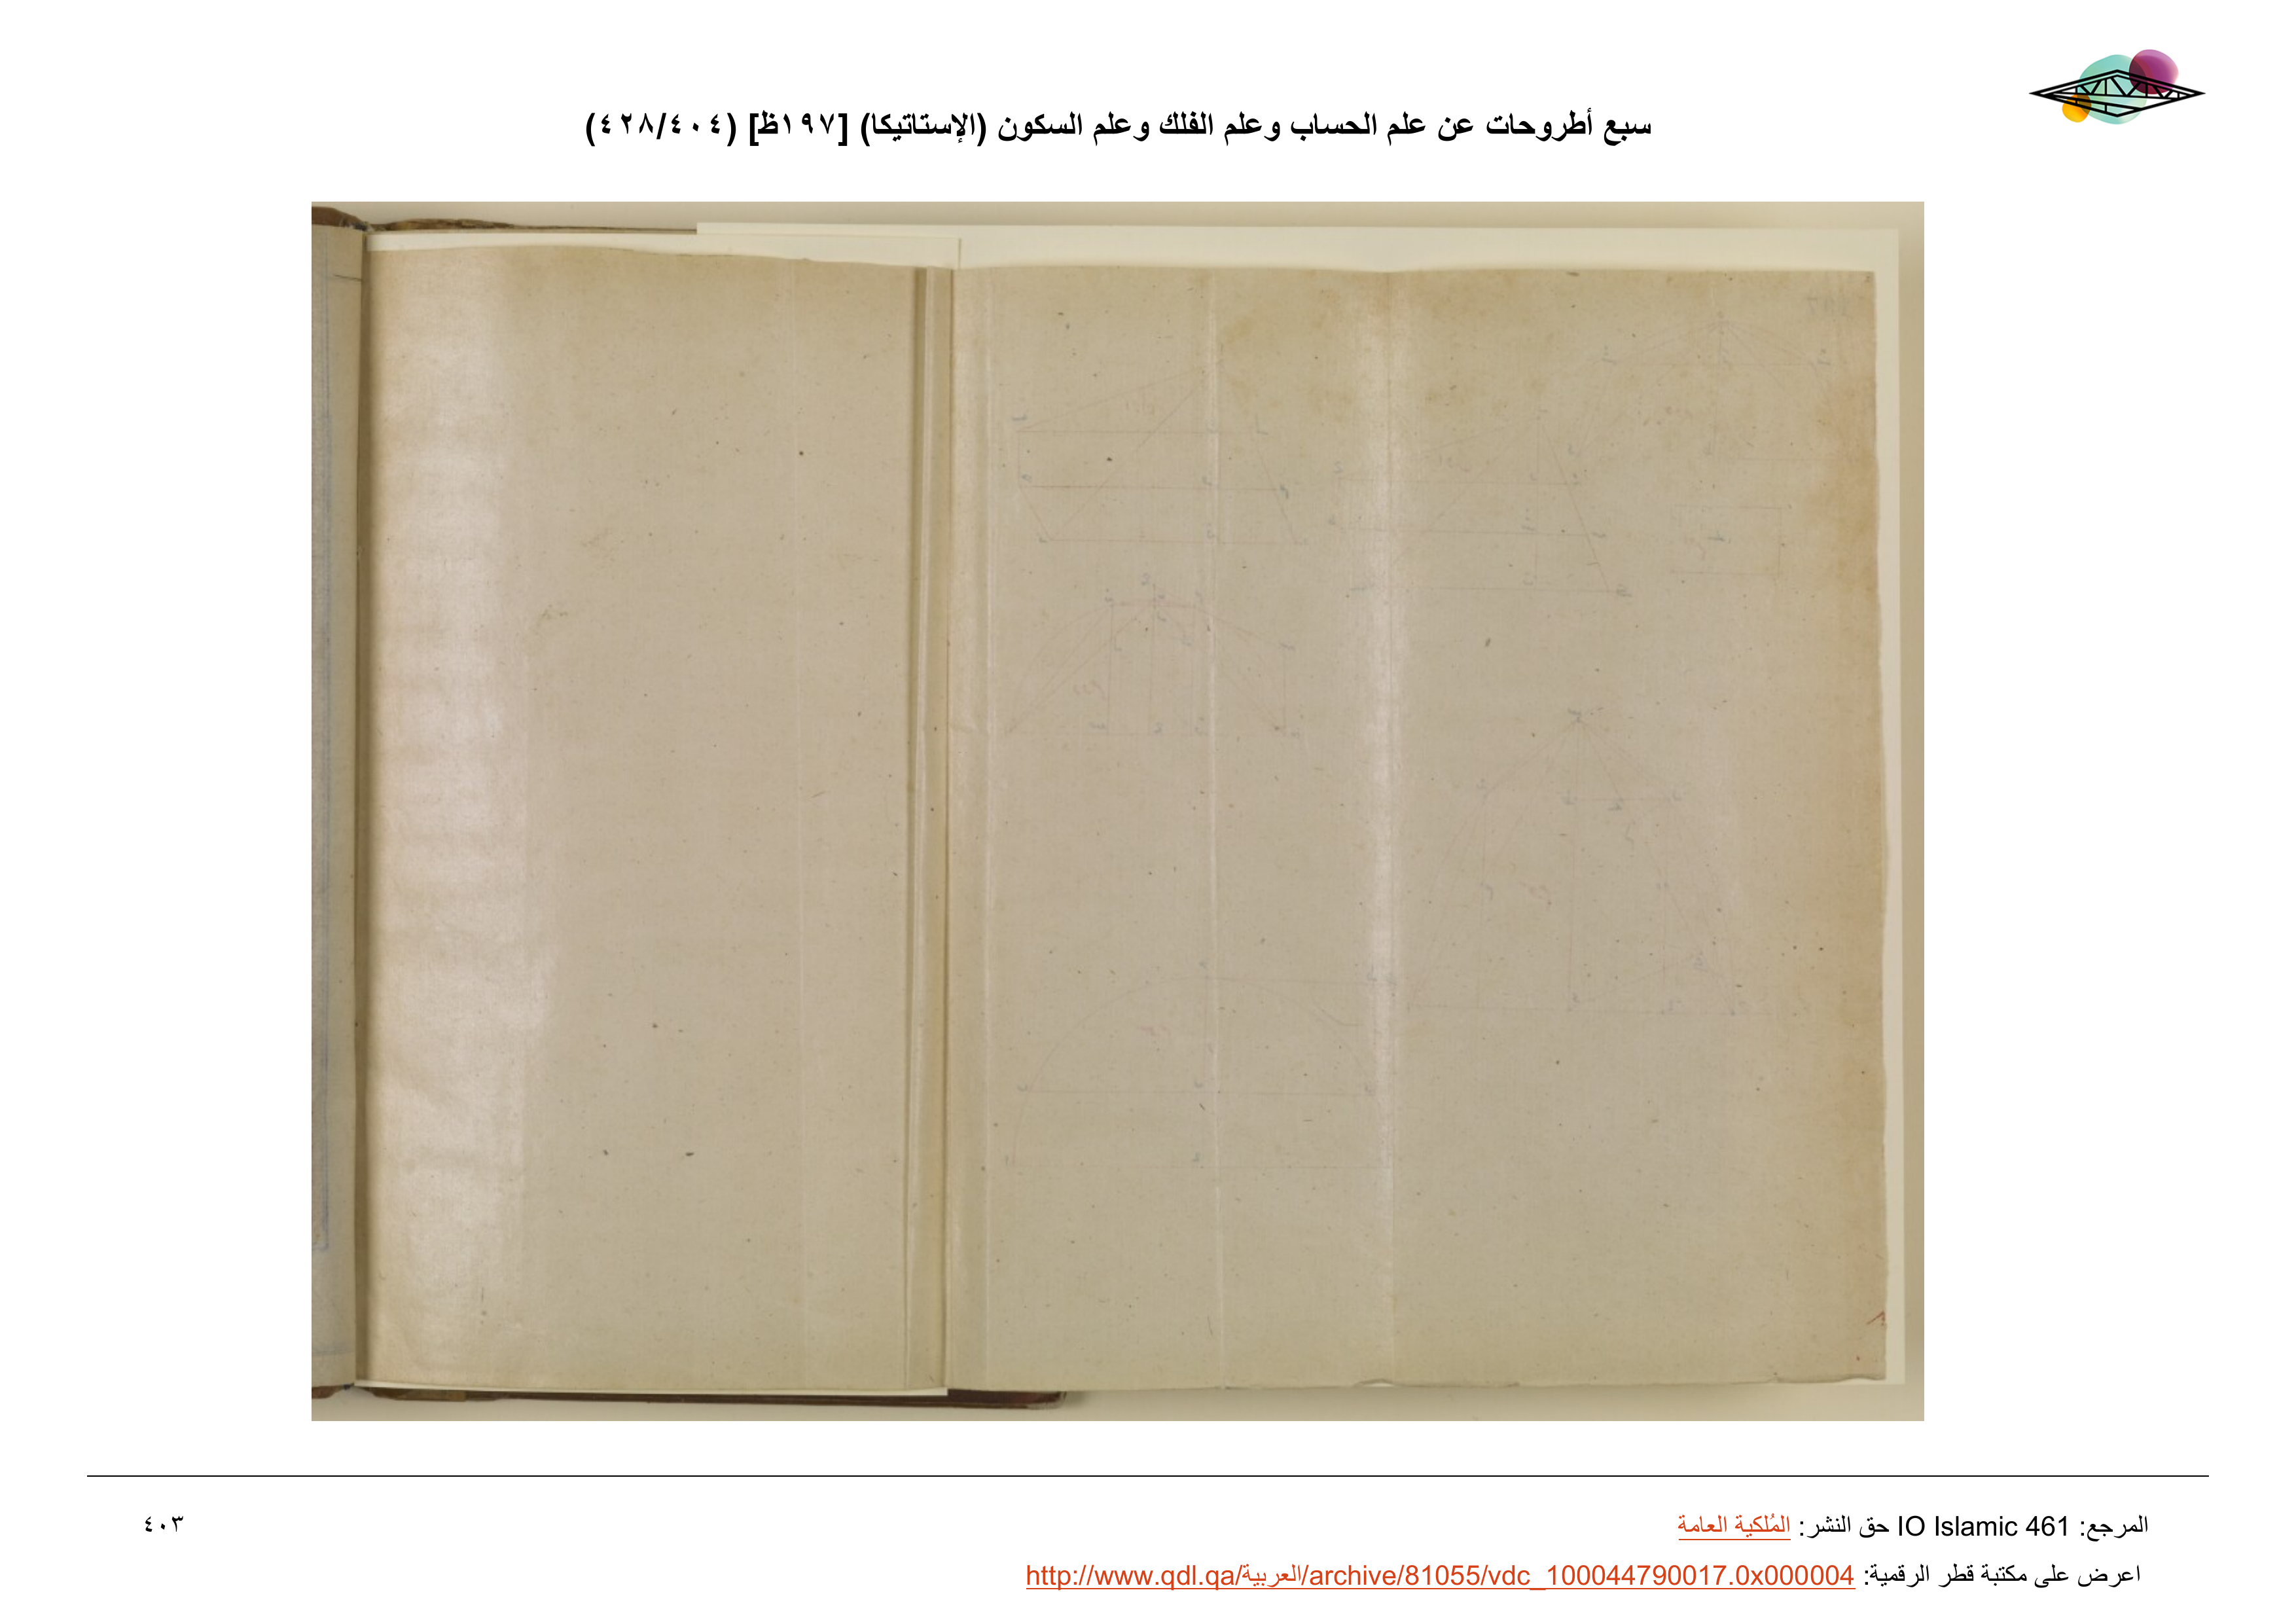 سبع أطروحات عن علم الحساب وعلم الفلك وعلم السكون (الإستاتيكا) [١٩٧ظ] (٤٢٨/٤٠٤)
المرجع: IO Islamic 461 حق النشر: المُلكية العامة
٤٠٣
اعرض على مكتبة قطر الرقمية: http://www.qdl.qa/العربية/archive/81055/vdc_100044790017.0x000004